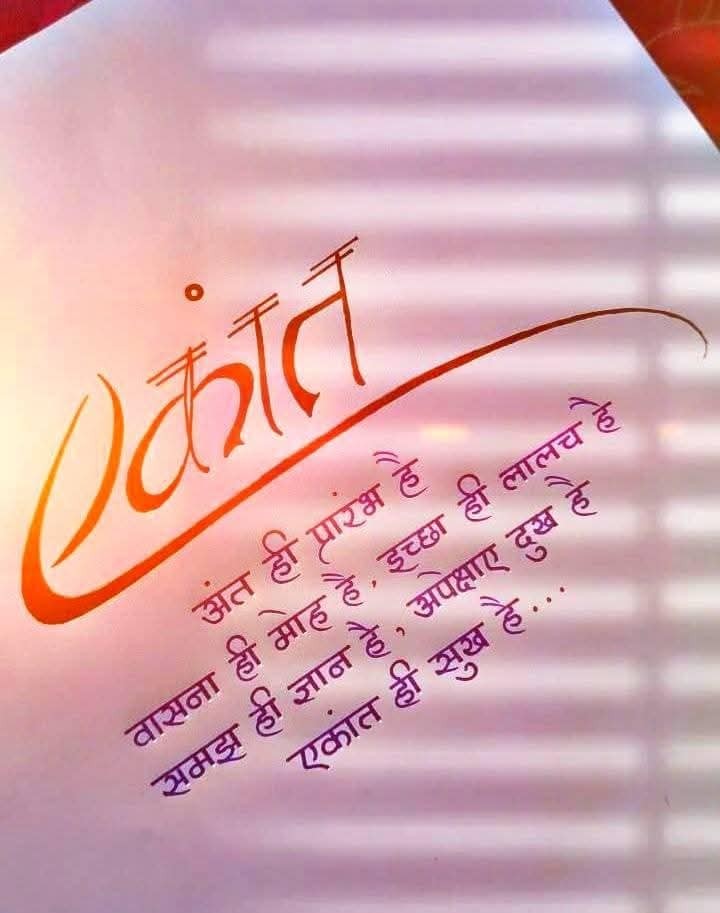 एकांत
अंत ही प्रारंभ है
वासना ही मोह है, इच्छा ही लालच है
समझ ही ज्ञान है, अपेक्षाए दुख है
एकांत ही सुख है...